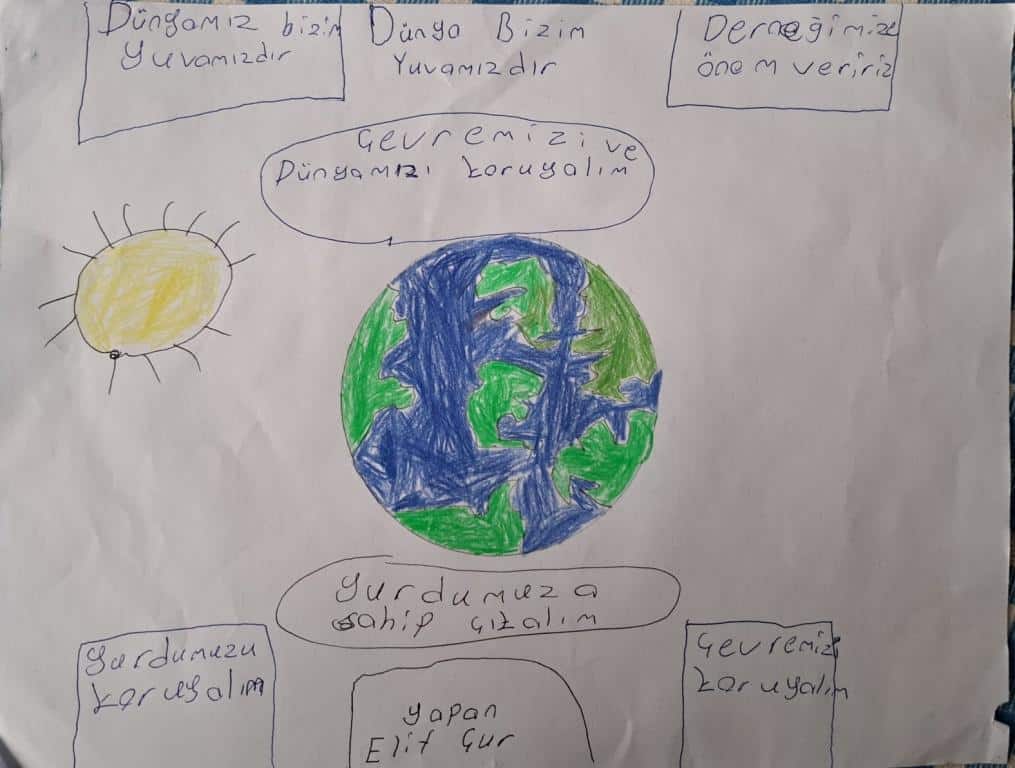 Dünyamız bizim
Yuvamızdır
Dünya Bizim
Yuvamızdır
Derneğimize
önem veririz
Çevremizi ve
Dünyamızı koruyalım
Yurdumuza
sahip çıkalım
Yurdumuzu
koruyalım
yapan
Elif Gür
Çevremizi
koruyalım